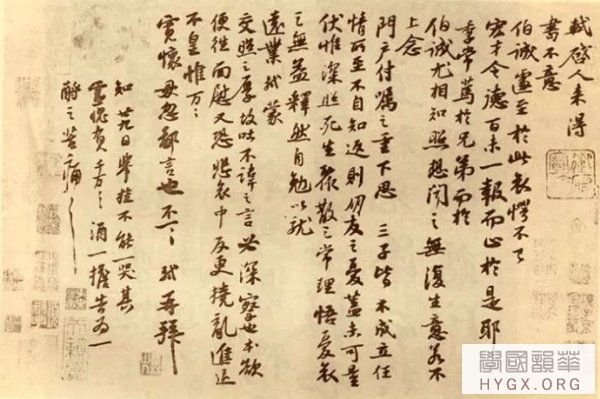 軾啓人來得
書不意
伯誠遽至於此哀愕不已
宏才令德百未一報而止於是耶
季常篤於兄弟而於
伯誠尤相知照想聞之無復生意若不
上念
門户付囑之重下思三子皆不成立任
情所至不自知返則朋友之憂蓋未可量
伏惟深照死生聚散之常理悟憂哀
之無益釋然自勉以就
遠業軾蒙
交照之厚故吐不諱之言必深察也本欲
便往面慰又恐悲哀中反更撓亂進退
不皇惟万万
寬懷毋忽鄙言也不一一軾再拜
知廿九日舉挂不能一哭其
靈愧負千万千万酒一擔告為一
酹之苦痛苦痛
學國韻華
HYGX.ORG